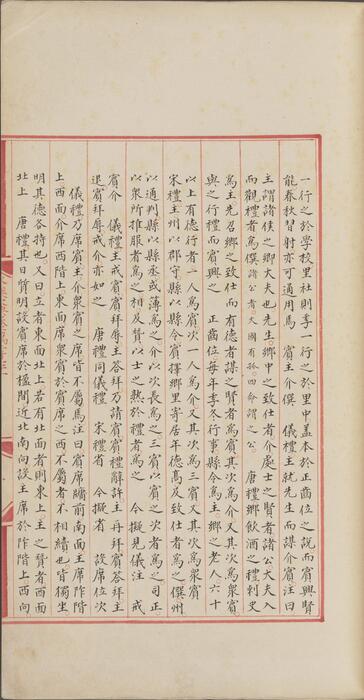 一行之於學校里社則季一行之於里中蓋本於正齒位之說而賓興賢
能春秋習射亦可通用焉　賓主介僎　儀禮主就先生而謀介賓注曰
主謂諸侯之鄉大夫也先生鄉中之致仕者介處士之賢者諸公大夫入
而觀禮者爲僎諸公者大國有孤四命謂之公　唐禮鄉飲酒之禮刺史
爲主先召鄉之致仕而有德者謀之賢者爲賓其次爲介又其次爲衆賓
與之行禮而賓興之　正齒位每年季冬行事縣令爲主鄉之老人六十
以上有德行者一人爲賓次一人爲介又其次爲三賓又其次爲衆賓
宋禮主州以郡守縣以縣令賓擇鄉里寄居年德高及致仕者爲之僎州
以通判縣以縣丞或薄爲之介以次長爲之三賓以賓之次者爲之司正
以衆所推服者爲之相及贊以士之熟於禮者爲之　今擬見儀注　戒
賓介　儀禮主戒賓賓拜辱主答拜乃請賓賓禮辭許主再拜賓答拜主
退賓拜辱戒介亦如之　唐禮同儀禮　宋禮省　今擬省　設席位次
儀禮乃席賓主介衆賓之席皆不屬焉注曰賓席牖前南面主席阼階
上西面介席西階上東面席衆賓於賓席之西不屬者不相續也皆獨坐
明其德各特也又曰立者東面北上若有北面者則東上主之贊者西面
北上　唐禮其日質明設賓席於楹間近北南向設主席於阼階上西向